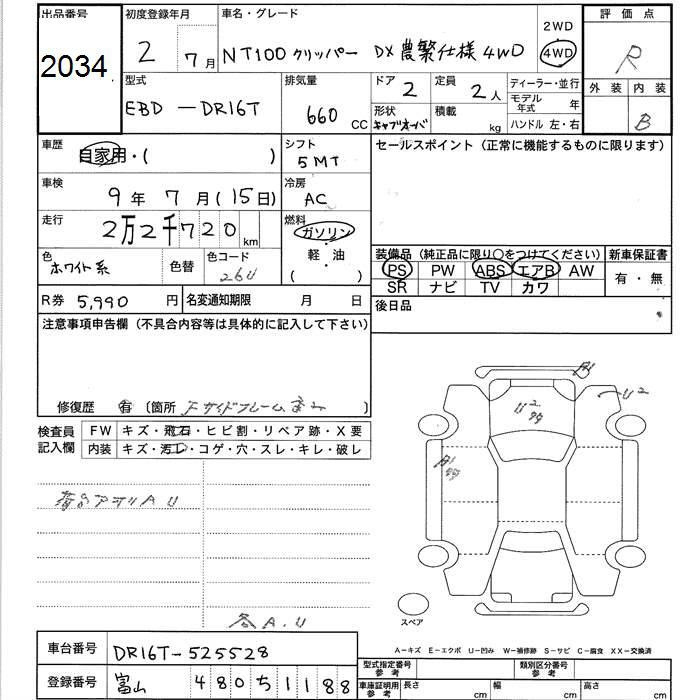 出品番号
2034
初度登録年月
2 7月
車名・グレード
NT100クリッパー DX農繁仕様4WD
2WD
4WD
評価点
R
外装 内装
B
型式
EBD-DR16T
排気量
660 CC
ドア
2
定員
2人
形状
キャブオーバ
積載
kg
ディーラー・並行
モデル年式 年
ハンドル 左・右
車歴
自家用・( )
シフト
5MT
セールスポイント(正常に機能するものに限ります)
車検
9年 7月(15日)
冷房
AC
走行
2万2千720 km
燃料
ガソリン
軽・油
( )
色
ホワイト系
色替
色コード
26U
装備品(純正品に限り○をつけてください)
PS PW ABS エアB AW
SR ナビ TV カワ
新車保証書
有・無
R券 5,990円
名変通知期限 月 日
後日品
注意事項申告欄(不具合内容等は具体的に記入して下さい)
修復歴 有 〔箇所 Fサイドフレーム 〕
検査員記入欄
FW キズ・飛石・ヒビ割・リペア跡・X要
内装 キズ・汚レ・コゲ・穴・スレ・キレ・破レ
荷台アオリA U
各A.U
U2
U2
スペア
A-キズ E-エクボ U-凹み W-補修跡 S-サビ C-腐食 XX-交換済
車台番号
DR16T-525528
登録番号
富山 480 5 1188
型式指定番号 参考
類別区分番号 参考
車庫証明用 参考
長さ cm
幅 cm
高さ cm